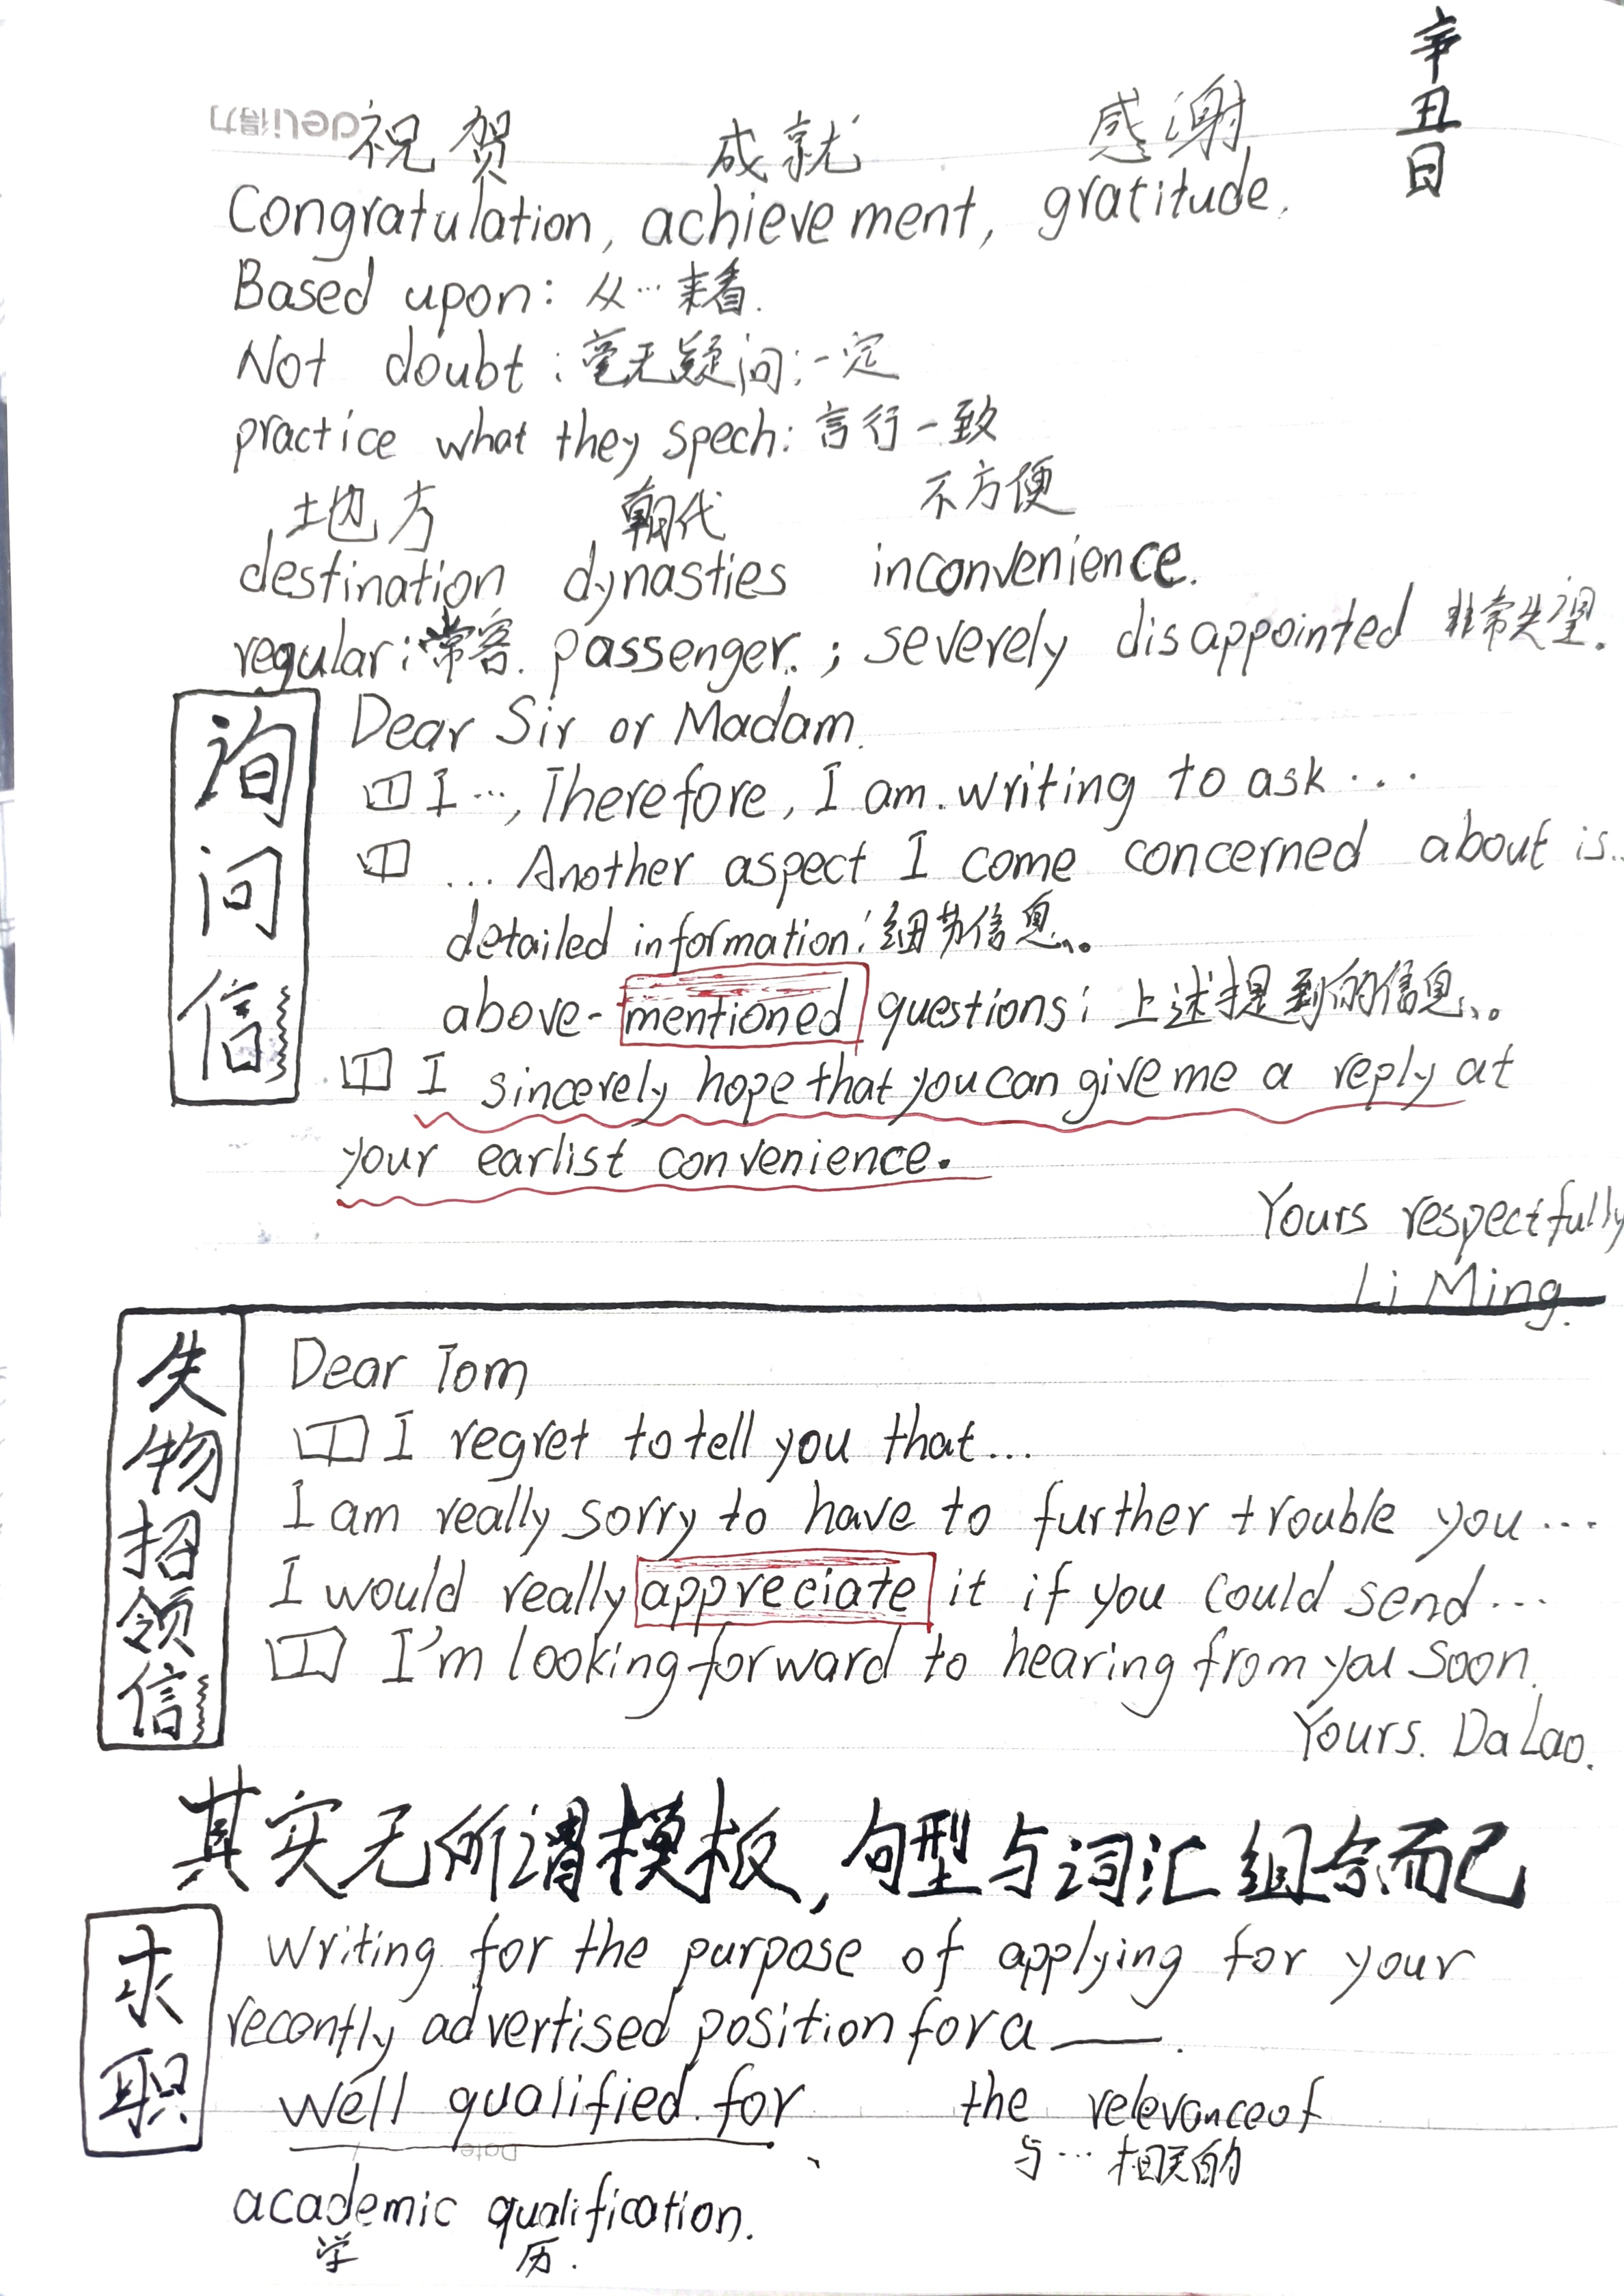 辛丑日
deli得力
祝贺 成就 感谢
Congratulation, achievement, gratitude.
Based upon: 从…来看.
Not doubt: 毫无疑问; 一定
practice what they spech: 言行一致
地方 朝代 不方便
destination dynasties inconvenience.
regular: 常客. passenger. ; severely disappointed 非常失望.
询问信
Dear Sir or Madam.
I …, Therefore, I am. writing to ask …
… Another aspect I come concerned about is..
detailed information: 细节信息、。
above-mentioned questions: 上述提到的信息、。
I sincerely hope that you can give me a reply at
your earlist convenience.
Yours respectfully
Li Ming.
失物招领信
Dear Tom
I regret to tell you that…
I am really sorry to have to further trouble you …
I would really appreciate it if you could send …
I'm looking forward to hearing from you soon.
Yours. Da Lao.
其实无所谓模板, 句型与词汇组合而已
求职
writing for the purpose of applying for your
recently advertised position for a ——.
well qualified for、 the relevance of
与… 相关的
Date
academic qualification.
学 历.